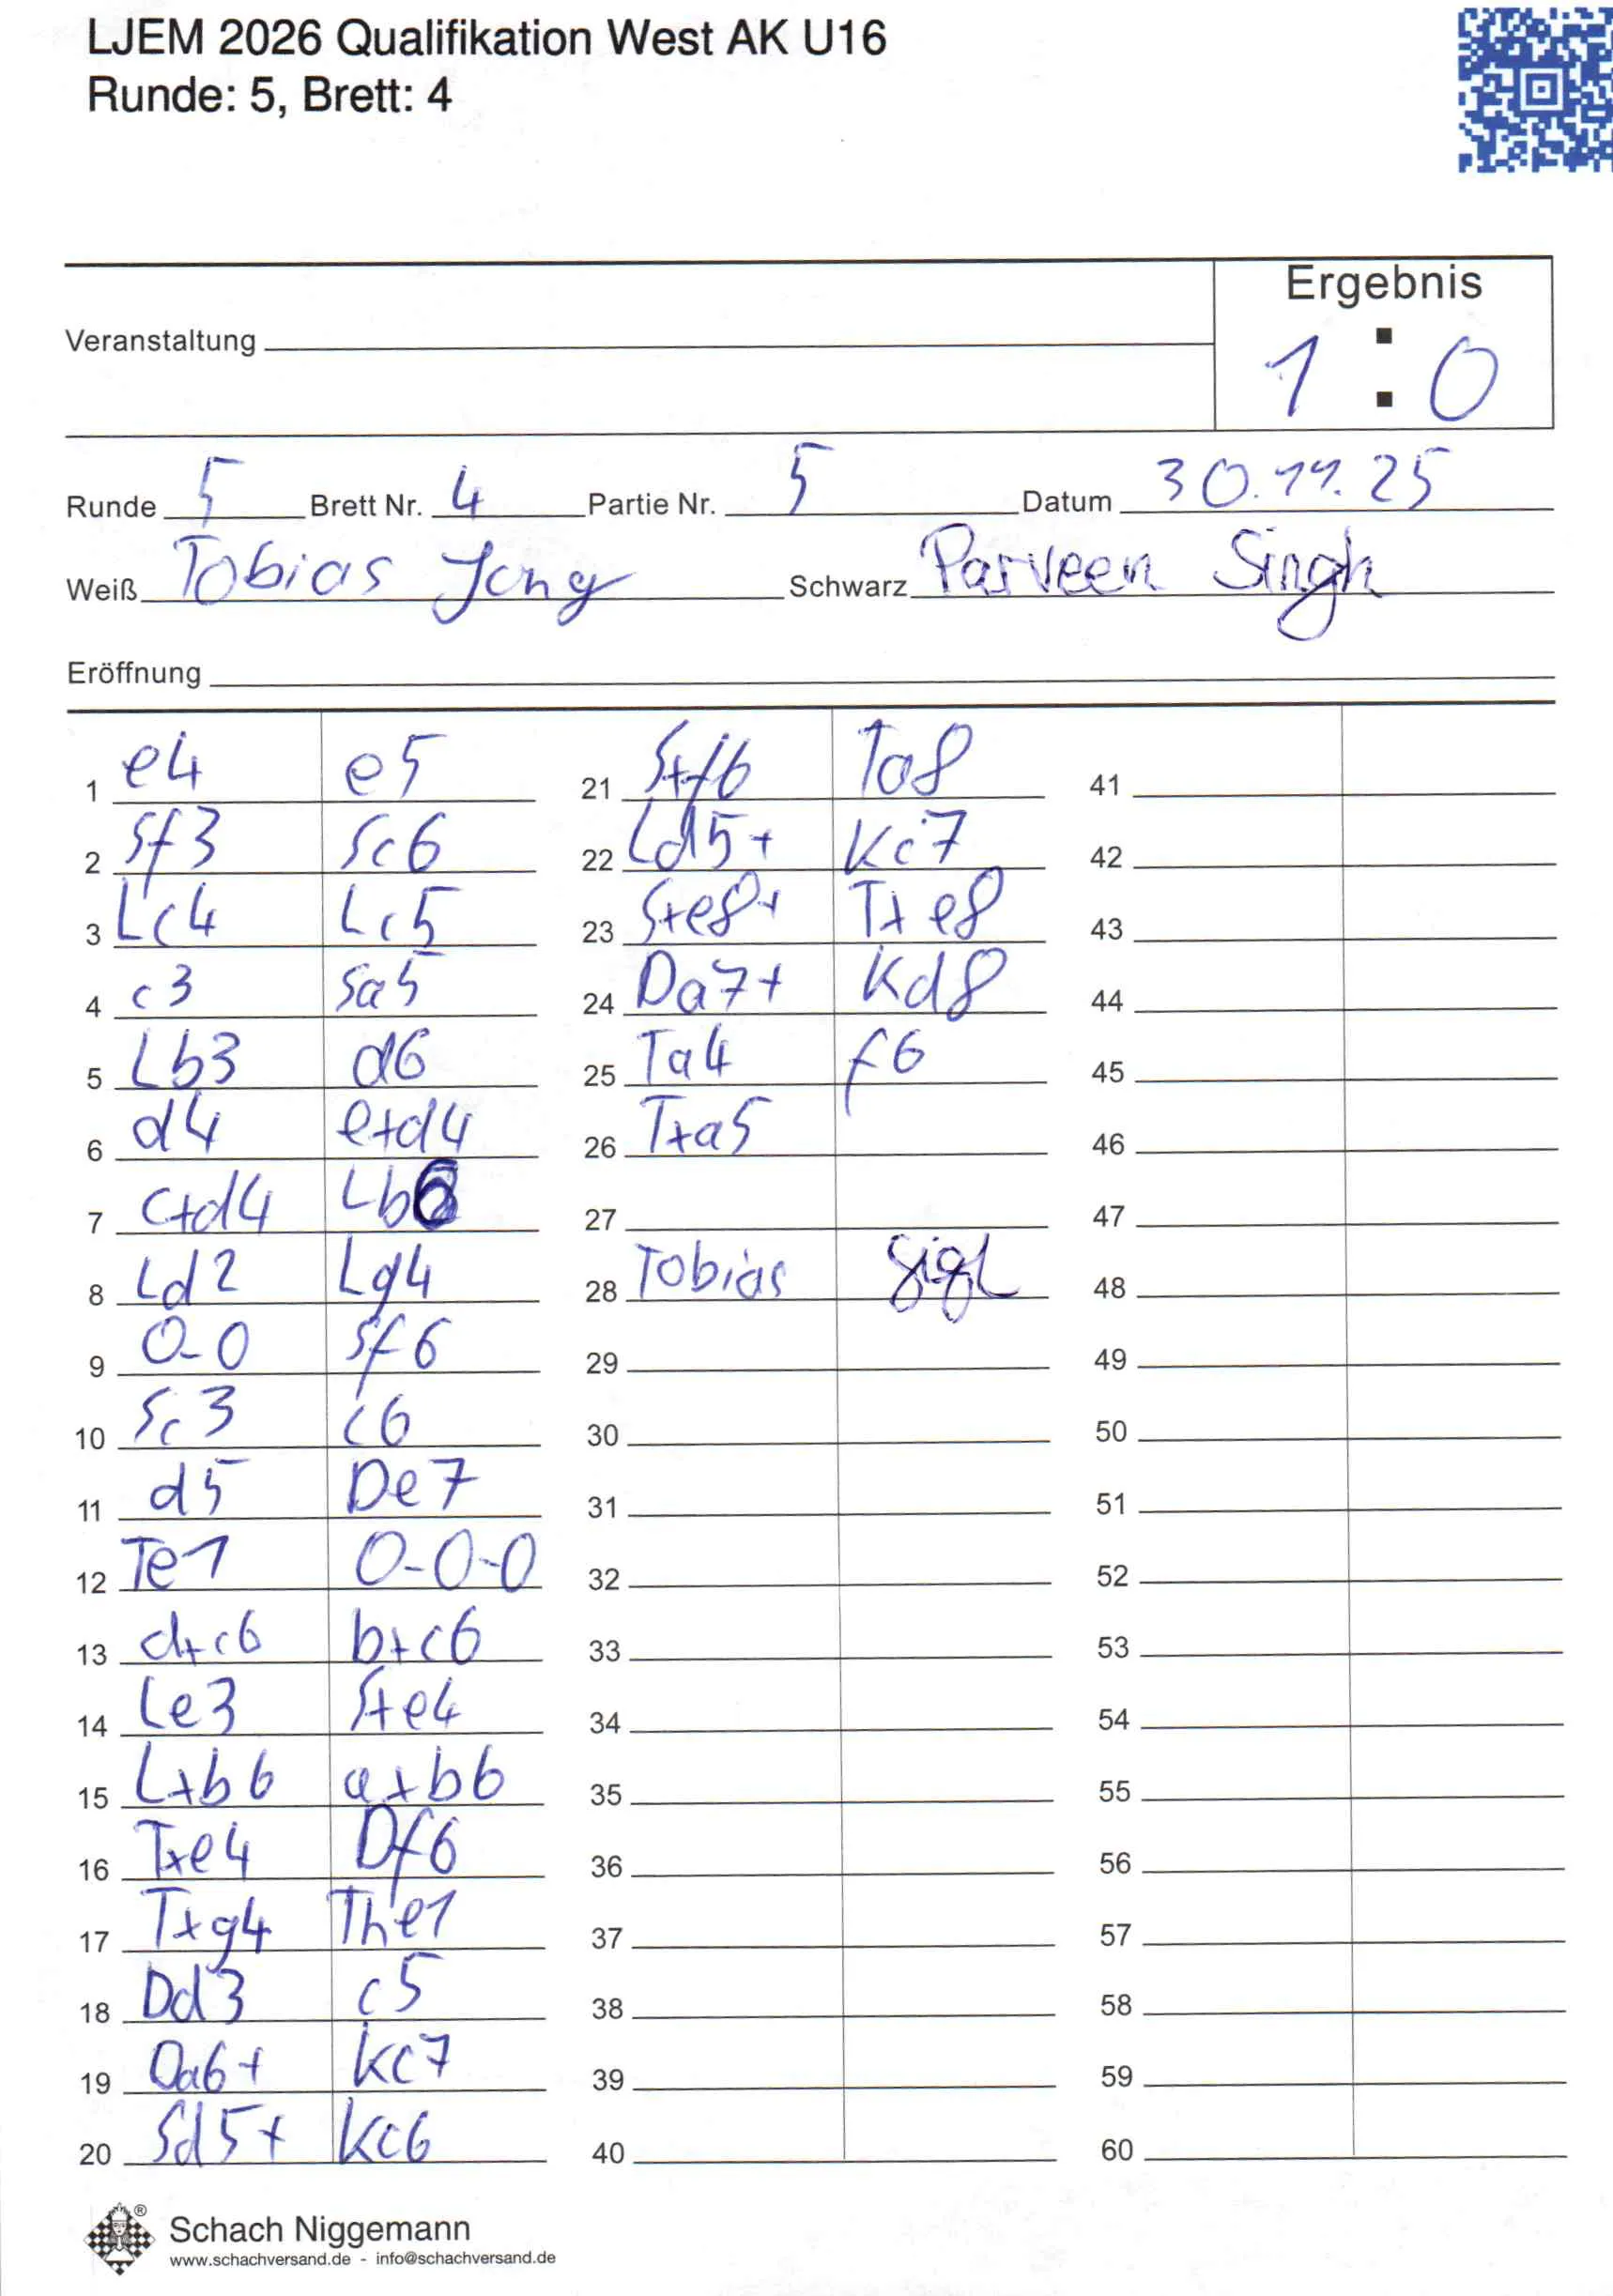 LJEM 2026 Qualifikation West AK U16
Runde: 5, Brett: 4
Ergebnis
Veranstaltung
1 : 0
Runde 5 Brett Nr. 4 Partie Nr. 5 Datum 30.11.25
Weiß Tobias Jung Schwarz Parveen Singh
Eröffnung
1 e4 e5
2 Sf3 Sc6
3 Lc4 Lc5
4 c3 Sa5
5 Lb3 d6
6 d4 exd4
7 cxd4 Lb6
8 Ld2 Lg4
9 0-0 Sf6
10 Sc3 c6
11 d5 De7
12 Te1 0-0-0
13 dxc6 bxc6
14 Le3 Sxe4
15 Lxb6 axb6
16 Txe4 Df6
17 Txg4 The1
18 Dd3 c5
19 Da6+ Kc7
20 Sd5+ Kc6
21 Sxf6 Ta8
22 Ld5+ Kc7
23 Sxe8+ Txe8
24 Da7+ Kd8
25 Ta4 f6
26 Txa5
27
28 Tobias
29
30
31
32
33
34
35
36
37
38
39
40
41
42
43
44
45
46
47
48
49
50
51
52
53
54
55
56
57
58
59
60
Schach Niggemann
www.schachversand.de - info@schachversand.de